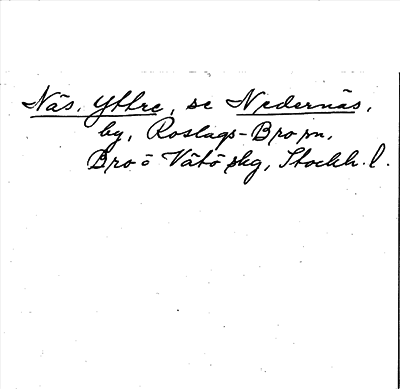 Näs, Yttre, se Nedernäs,
by, Roslags-Bro sn,
Bro o Vätö skg, Stockh. l.